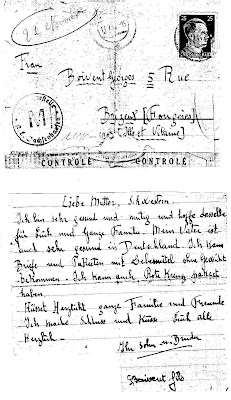 22
25
Frau
Boivent Georges 5 Rue
Bazent (Fougères)
Ille et Vilaine
M
CONTROLÉ CONTROLÉ
Liebe Mutter, Schwestern
Ich bin sehr gesund und mutig und hoffe dasselbe
für Euch und Ganze Familie. Mein Vater ist
auch sehr gesund in Deutschland. Ich kann
Briefe und Paketten mit Lebensmittel ohne Gewicht
bekommen. Ich kann auch Rote Kreuz
haben.
Küsst Herzlicht ganze Familie und Freunde
Ich mache Schluss und Küsse Euch alle
Herzlich -
Ihr Sohn u. Bruder
Boivent